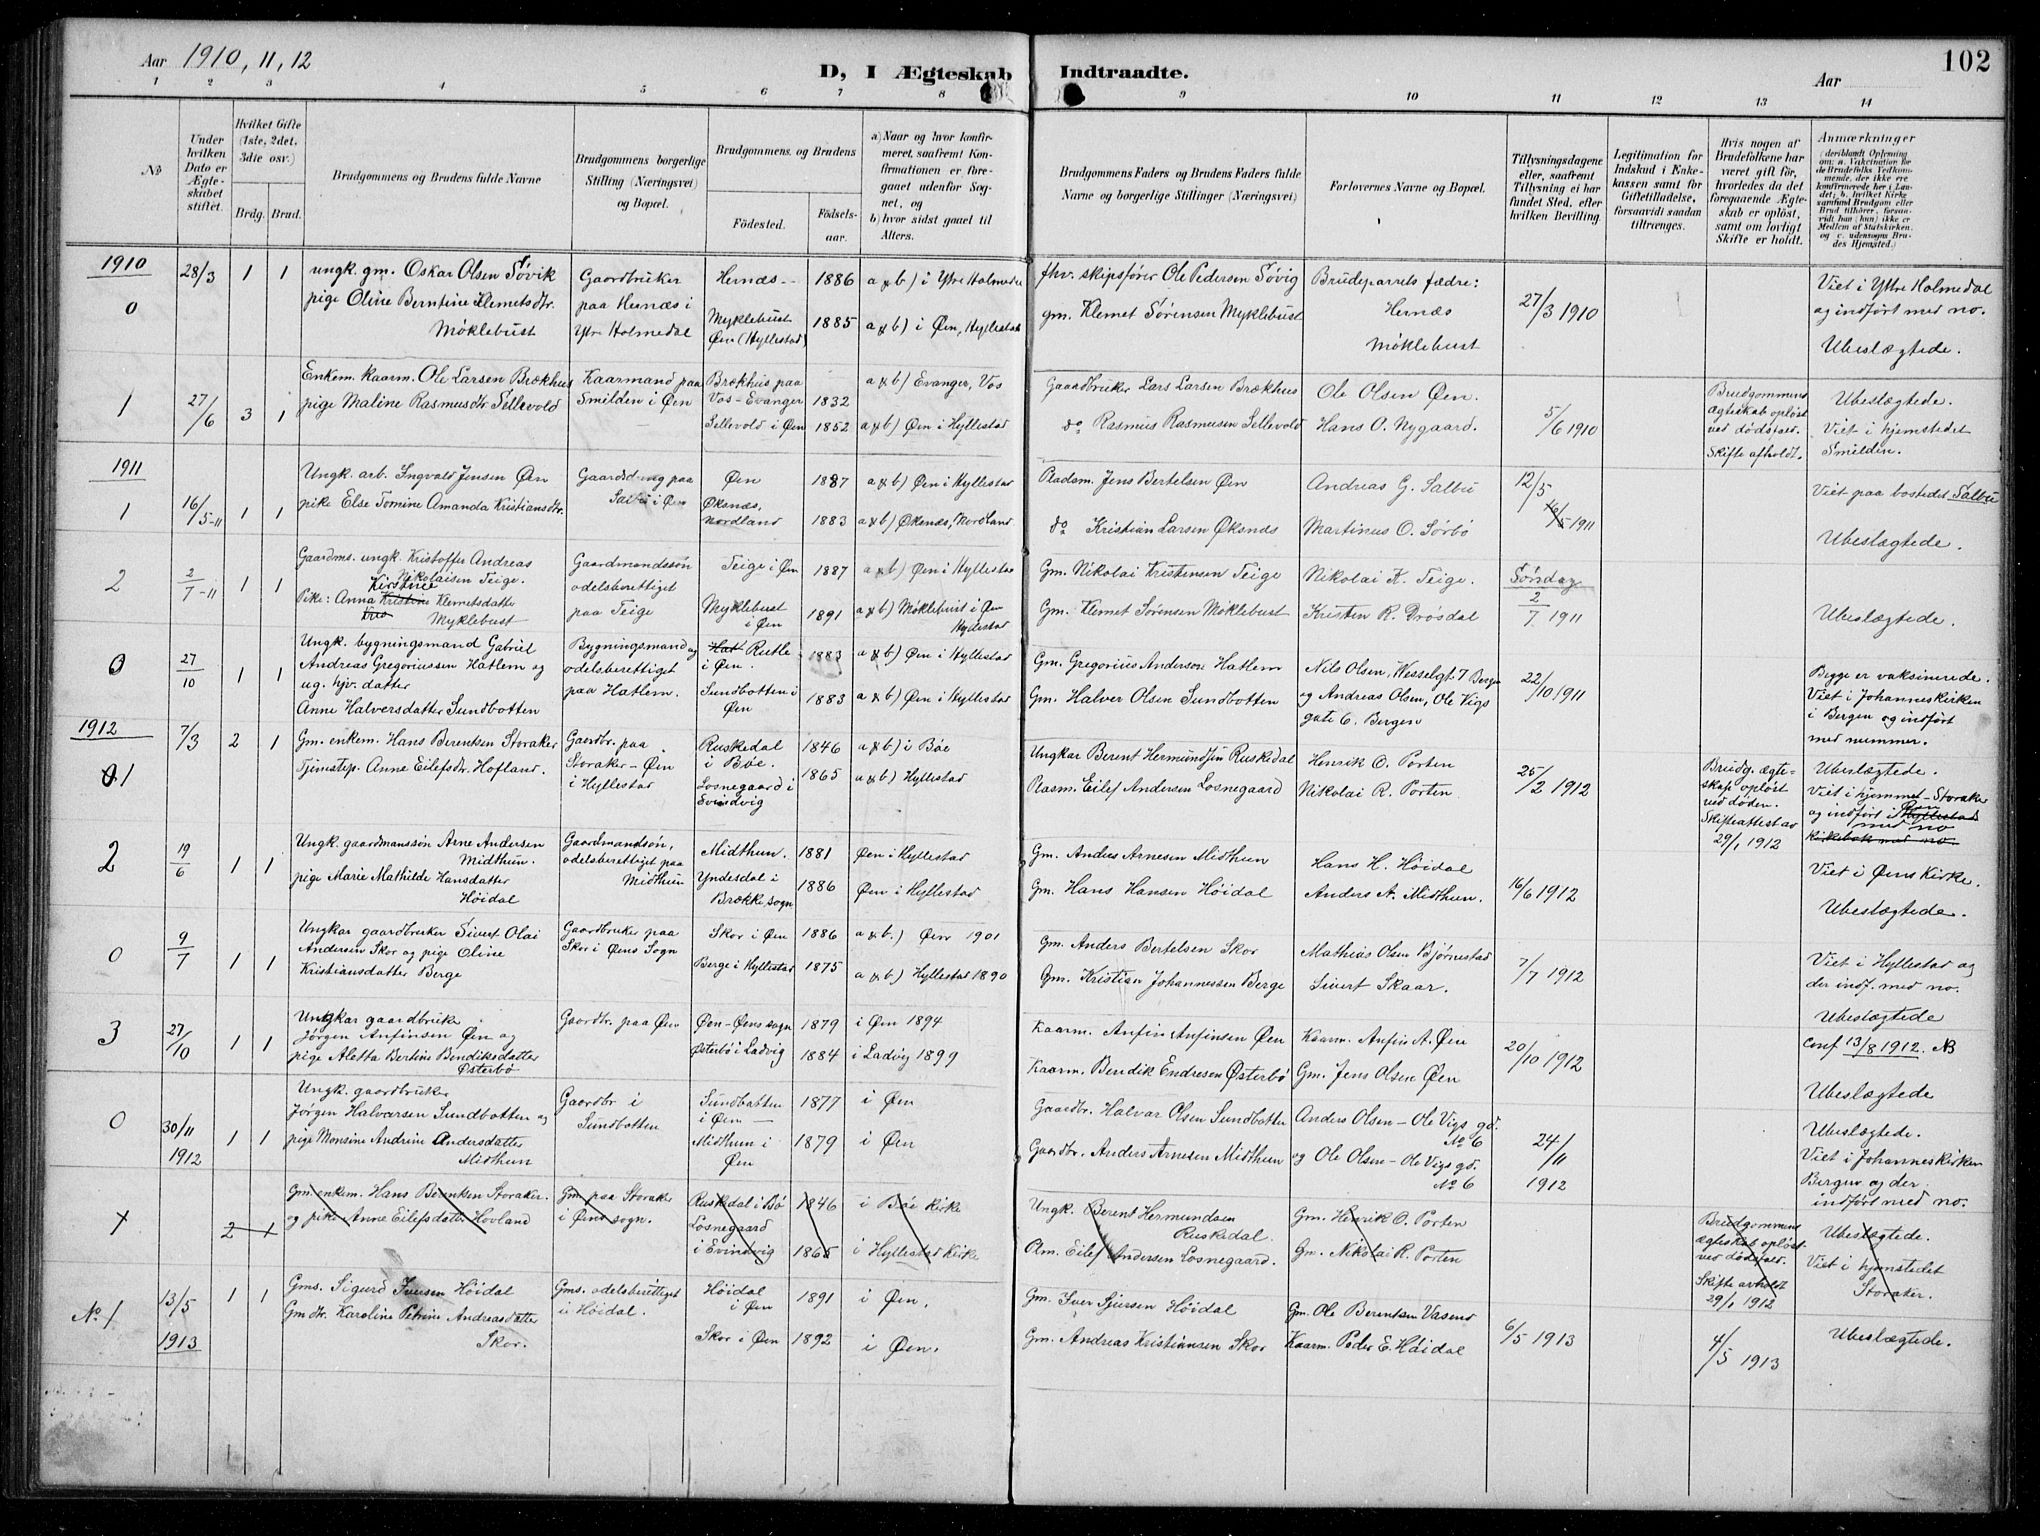 Aar 1910, 11, 12
D, I Ægteskab Indtraadte.
Aar
102
1 2 3 4 5 6 7 8 9 10 11 12 13 14
No
Under hvilken Dato er Ægteskabet stiftet.
Hvilket Gifte (1ste, 2det, 3die osv.)
Brdg. Brud.
Brudgommens og Brudens fulde Navne
Brudgommens borgerlige Stilling (Næringsvei) og Bopæl.
Brudgommens og Brudens
Fødested.
Fødsels-aar.
a) Naar og hvor konfirmeret, saafremt Konfirmationen er foregaaet udenfor Sognet, og
b) hvor sidst gaaet til Alters.
Brudgommens Faders og Brudens Faders fulde Navne og borgerlige Stillinger (Næringsvei)
Forlovernes Navne og Bopæl.
Tillysningsdagene eller, saafremt Tillysning ei har fundet Sted, efter hvilken Bevilling.
Legitimation for Indskud i Enkekassen samt for Giftetilladelse, forsaavidt saadan tiltrænges.
Hvis nogen af Brudefolkene har været gift før, hvorledes da det foregaaende Ægteskab er opløst, samt om lovligt Skifte er holdt.
Anmærkninger
(deriblandt Oplysning om: a. Vakcination for de Brudefolks Vedkommende, der ikke ere konfirmerede her i Landet; b. hvilket Kirkesamfund Brudgom eller Brud tilhører, forsaavidt han (hun) ikke er Medlem af Statskirken, og c. udensogns Brudes Hjemsted.)
1910
0 28/3 1 1
ungk. gm. Oskar Olsen Søvik
pige Oline Berntine Klemetsdtr.
Møklebust
Gaardbruker
paa Hernæs i
Ytr. Holmedal
Hernæs - 1886 a & b) i Ytre Holmedal
Myklebust
Øen (Hyllestad) 1885 a & b) i Øen, Hyllestad
fhv. skipsfører Ole Pedersen Søvig
gm. Klemet Sørensen Myklebust
Brudeparrets fædre:
Hernæs
Møklebust
27/3 1910
Viet i Yttre Holmedal
og indført med no.
Ubeslægtede.
1 27/6 3 1
Enkem. kaarm. Ole Larsen Brækhus
pige Maline Rasmusdtr Sellevold
Kaarmand paa
Smilden i Øen
Brækhus paa
Vos - Evanger 1832 a & b) Evanger, Vos
Sellevold i Øen 1852 a & b) Øen i Hyllestad
Gaardbruker Lars Larsen Brækhus
do Rasmus Rasmusen Sellevold
Ole Olsen Øen.
Hans O. Nygaard.
5/6 1910
Brudgommens
ægteskab opløst
ved dødsfald.
Skifte afholdt.
Ubeslægtede.
Viet i hjemstedet
Smilden.
1911
1 16/5-11 1 1
Ungk. arb. Ingvald Jensen Øen
pike Else Tomine Amanda Kristiansdtr.
paa
Salbu i Øen
Øen 1887 a & b) Øen i Hyllestad
Øksnæs,
Nordland 1883 a & b) Øksnæs, Nordland
Pladsm. Jens Bertelsen Øen
do Kristian Larsen Øksnæs
Andreas G. Salbu
Martinus O. Sørbø
12/5
16/5 1911
Viet paa bostedet Salbu
Ubeslægtede.
2 2/7-11 1 1
Gaardms. ungk. Kristoffer Andreas
Nikolaisen Teige.
Kirstine
Pike: Anna Kristine Klemetsdatter
Myklebust
Gaardmandssøn
odelsberettiget
paa Teige
Teige i Øen 1887 a & b) Øen i Hyllestad
Myklebust
i Øen 1891 a & b) Møklebust i Øen
Hyllestad
Gm. Nikolai Kristensen Teige
Gm. Klemet Sørensen Møklebust
Nikolai K. Teige.
Kristen R. Drøsdal
Søndag
2/7 1911
Ubeslægtede.
0 27/10 1 1
Ungk. bygningsmand Gabriel
Andreas Gregoriussen Hatlem og
ug. hjv. datter
Anne Halversdatter Sundbotten
Bygningsmand og
odelsberettiget
paa Hatlem.
Hat Rutle
i Øen. 1883 a & b) Øen i Hyllestad
Sundbotten i
Øen 1883 a & b) Øen i Hyllestad
Gm. Gregorius Anderson Hatlem
Gm. Halver Olsen Sundbotten
Nils Olsen, Wesselgt. 7 Bergen
og Andreas Olsen, Ole Vigs
gate 6. Bergen
22/10 1911
Begge er vaksinerede.
Viet i Johanneskirken
i Bergen og indført
med nummer.
1912
01 7/3 2 1
Gm. enkem. Hans Berentsen Storaker
Tjenstep. Anne Eilefsdtr. Hofland.
Gaardbr. paa
Storaker - Øen
i Hyllestad
Ruskedal
i Bøe. 1846 a & b) i Bøe
Losnegaard i
Evindvig 1865 a & b) Hyllestad
Ungkar Berent Hermundsen Ruskedal
Rasm. Eilef Andersen Losnegaard
Henrik O. Porten
Nikolai R. Porten
25/2 1912
Brudg. ægte-
skap opløst
ved døden.
Skifteattest av
29/1 1912
Ubeslægtede.
Viet i hjemmet - Storaker
og indført i Hyllestad Øen
med no
kirkebok med no.
2 19/6 1 1
Ungk. gaardmanssøn Arne Andersen
Midthun.
pige Marie Mathilde Hansdatter
Høidal
Gaardmandsøn,
odelsberettiget paa
Midthun
Midthun. 1881 Øen i Hyllestad
Yndesdal i
Brække, sogn 1886 Øen i Hyllestad
Gm. Anders Arnesen Midthun
Gm. Hans Hansen Høidal
Hans H. Høidal
Anders A. Midthun.
16/6 1912
Viet i Øens Kirke.
Ubeslægtede.
0 9/7 1 1
Ungkar gaardbruker Sivert Olai
Andersen Skor og pige Oline
Kristiansdatter Berge
Gaardbruker paa
Skor i Øens Sogn
Skor i Øen 1886 a & b.) Øen 1901
Berge i Hyllestad 1875 a & b) Hyllestad 1890
Gm. Anders Bertelsen Skor
Gm. Kristian Johannessen Berge
Mathias Olsen Bjørnestad
Sivert Skaar.
7/7 1912
Viet i Hyllestad og
der indf. med no.
Ubeslægtede
3 27/10 1 1
Ungkar gaardbruke
Jørgen Anfinsen Øen og
pige Aletta Bertine Bendiksdatter
Østerbø
Gaardbr. paa Øen
Øen - Øens sogn 1879 i Øen 1894
Østerbø i Ladvig 1884 i Ladvig 1899
Kaarm. Anfin Anfinsen Øen
Kaarm. Bendik Endresen Østerbø
Kaarm. Anfin A. Øen
Gm. Jens Olsen Øen
20/10 1912
Conf 13/8 1912. NB
Ubeslægtede
0 30/11 1912 1 1
Ungk. gaardbruker
Jørgen Halvorsen Sundbotten og
pige Monsine Andrine Andersdatter
Midthun
Gaardbr i
Sundbotten
Sundbotten
i Øen — 1877 i Øen
Midthun i
Øen 1879 i Øen
Gaardbr. Halvar Olsen Sundbotten
Gaardbr. Anders Arnesen Midthun
Anders Olsen - Ole Vigs gd.
No 6
og Ole Olsen - Ole Vigs gd.
No 6
24/11
1912
Ubeslægtede.
Viet i Johanneskirken
Bergen og der
indført med no.
2 1
Gm. enkem. Hans Berentsen Storaker.
og pike Anne Eilefsdatter Hovland
Gm. paa Storaker
i Øens sogn.
Ruskedal i Bø 1846 i Bøe Kirke
Losnegaard
i Evindvig 1865 i Hyllestad Kirke
Ungk. Berent Hermundsen
Ruskedal.
Eilef Andersen Losnegaard.
Gm. Henrik O. Porten
Gm. Nikolai R. Porten
Brudgommens
ægteskab opløst
ved dødsfald.
Skifte avholdt
29/1 1912
Ubeslægtede.
Viet i hjemstedet
Storaker.
No 1 13/5 1913 1 1
Gms. Sigurd Iversen Høidal
Gm dtr. Karoline Petrine Andreasdatter
Skor.
Gms. odelsberettiget
i Høidal.
Høidal
i Øen 1891 i Øen.
Skor i Øen 1892 i Øen.
Gm. Iver Sjursen Høidal
Gm. Andreas Kristiansen Skor
Gm. Ole Berentsen Vasend
Kaarm. Peder E. Høidal
6/5 1913
4/5 1913
Ubeslægtede.